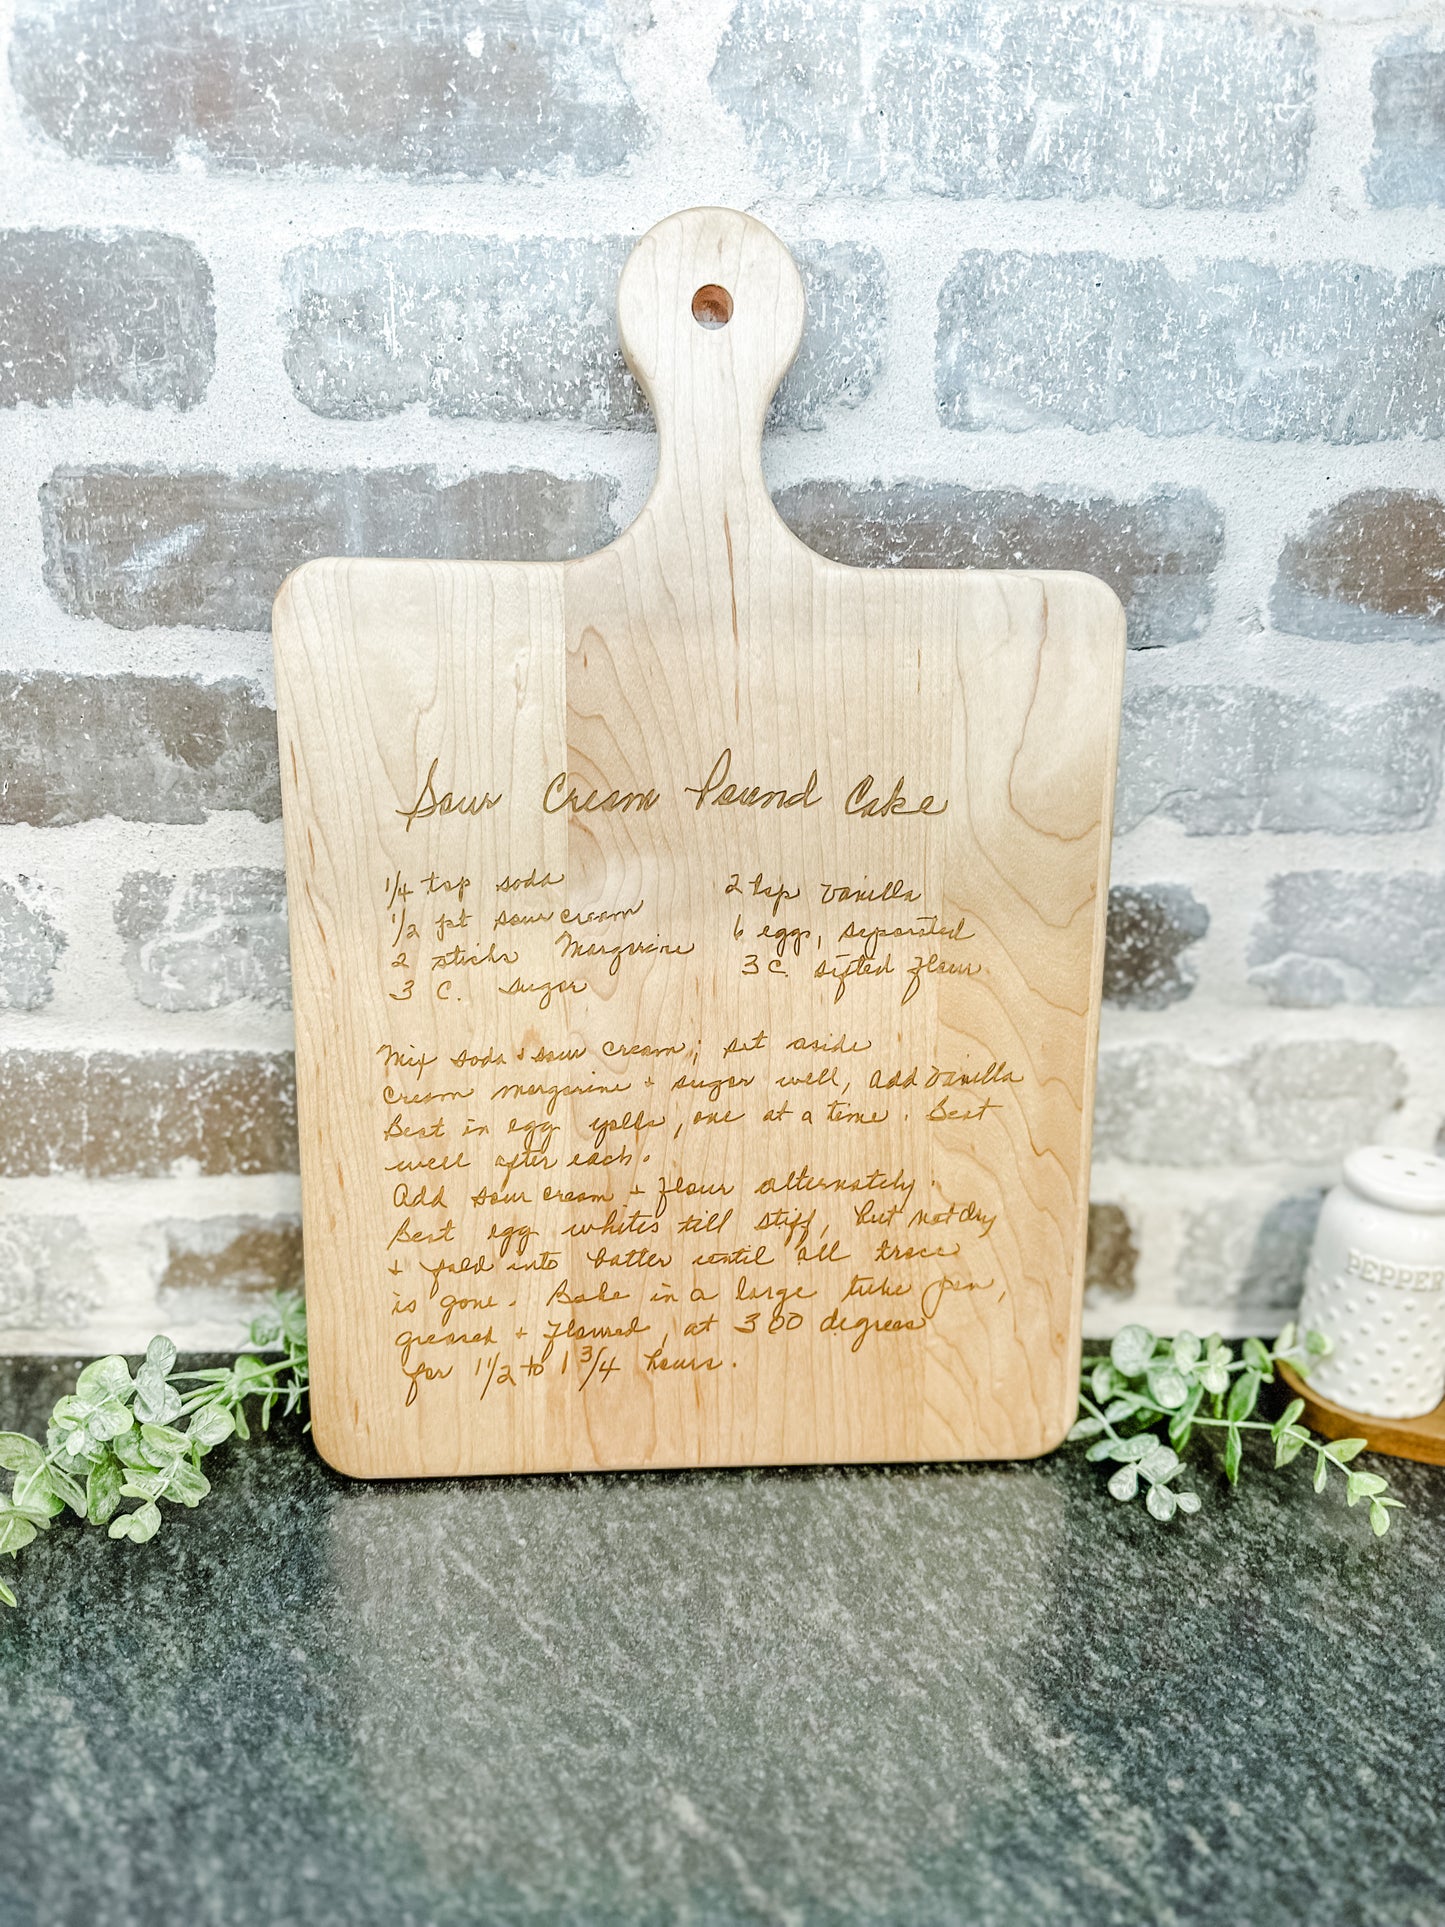 Sour Cream Pound Cake
1/4 tsp soda
1/2 pt sour cream
2 sticks Margarine
3 C. sugar
2 tsp Vanilla
6 eggs, separated
3 C. sifted flour
Mix soda & sour cream; set aside
Cream margarine + sugar well, add Vanilla
Beat in egg yolks, one at a time. Beat
well after each.
Add sour cream + flour alternately.
Beat egg whites till stiff, but not dry
+ fold into batter until all trace
is gone. Bake in a large tube pan,
greased + floured, at 300 degrees
for 1 1/2 to 1 3/4 hours.
PEPPER